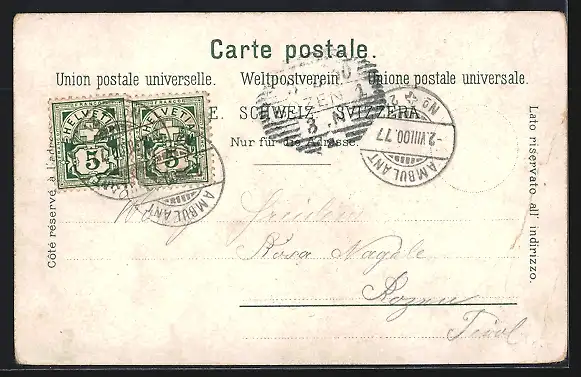 Carte postale.
Union postale universelle. Weltpostverein. Unione postale universale.
E. SCHWEIZ SVIZZERA
Nur für die Adresse.
Côté réservé à l'adresse
Lato riservato all indirizzo.
HELVETIA HELVETIA
5 5
AMBULANT
AMBULANT
No
2.VIII00.77
Rosa Nagele
Bozen
Tirol